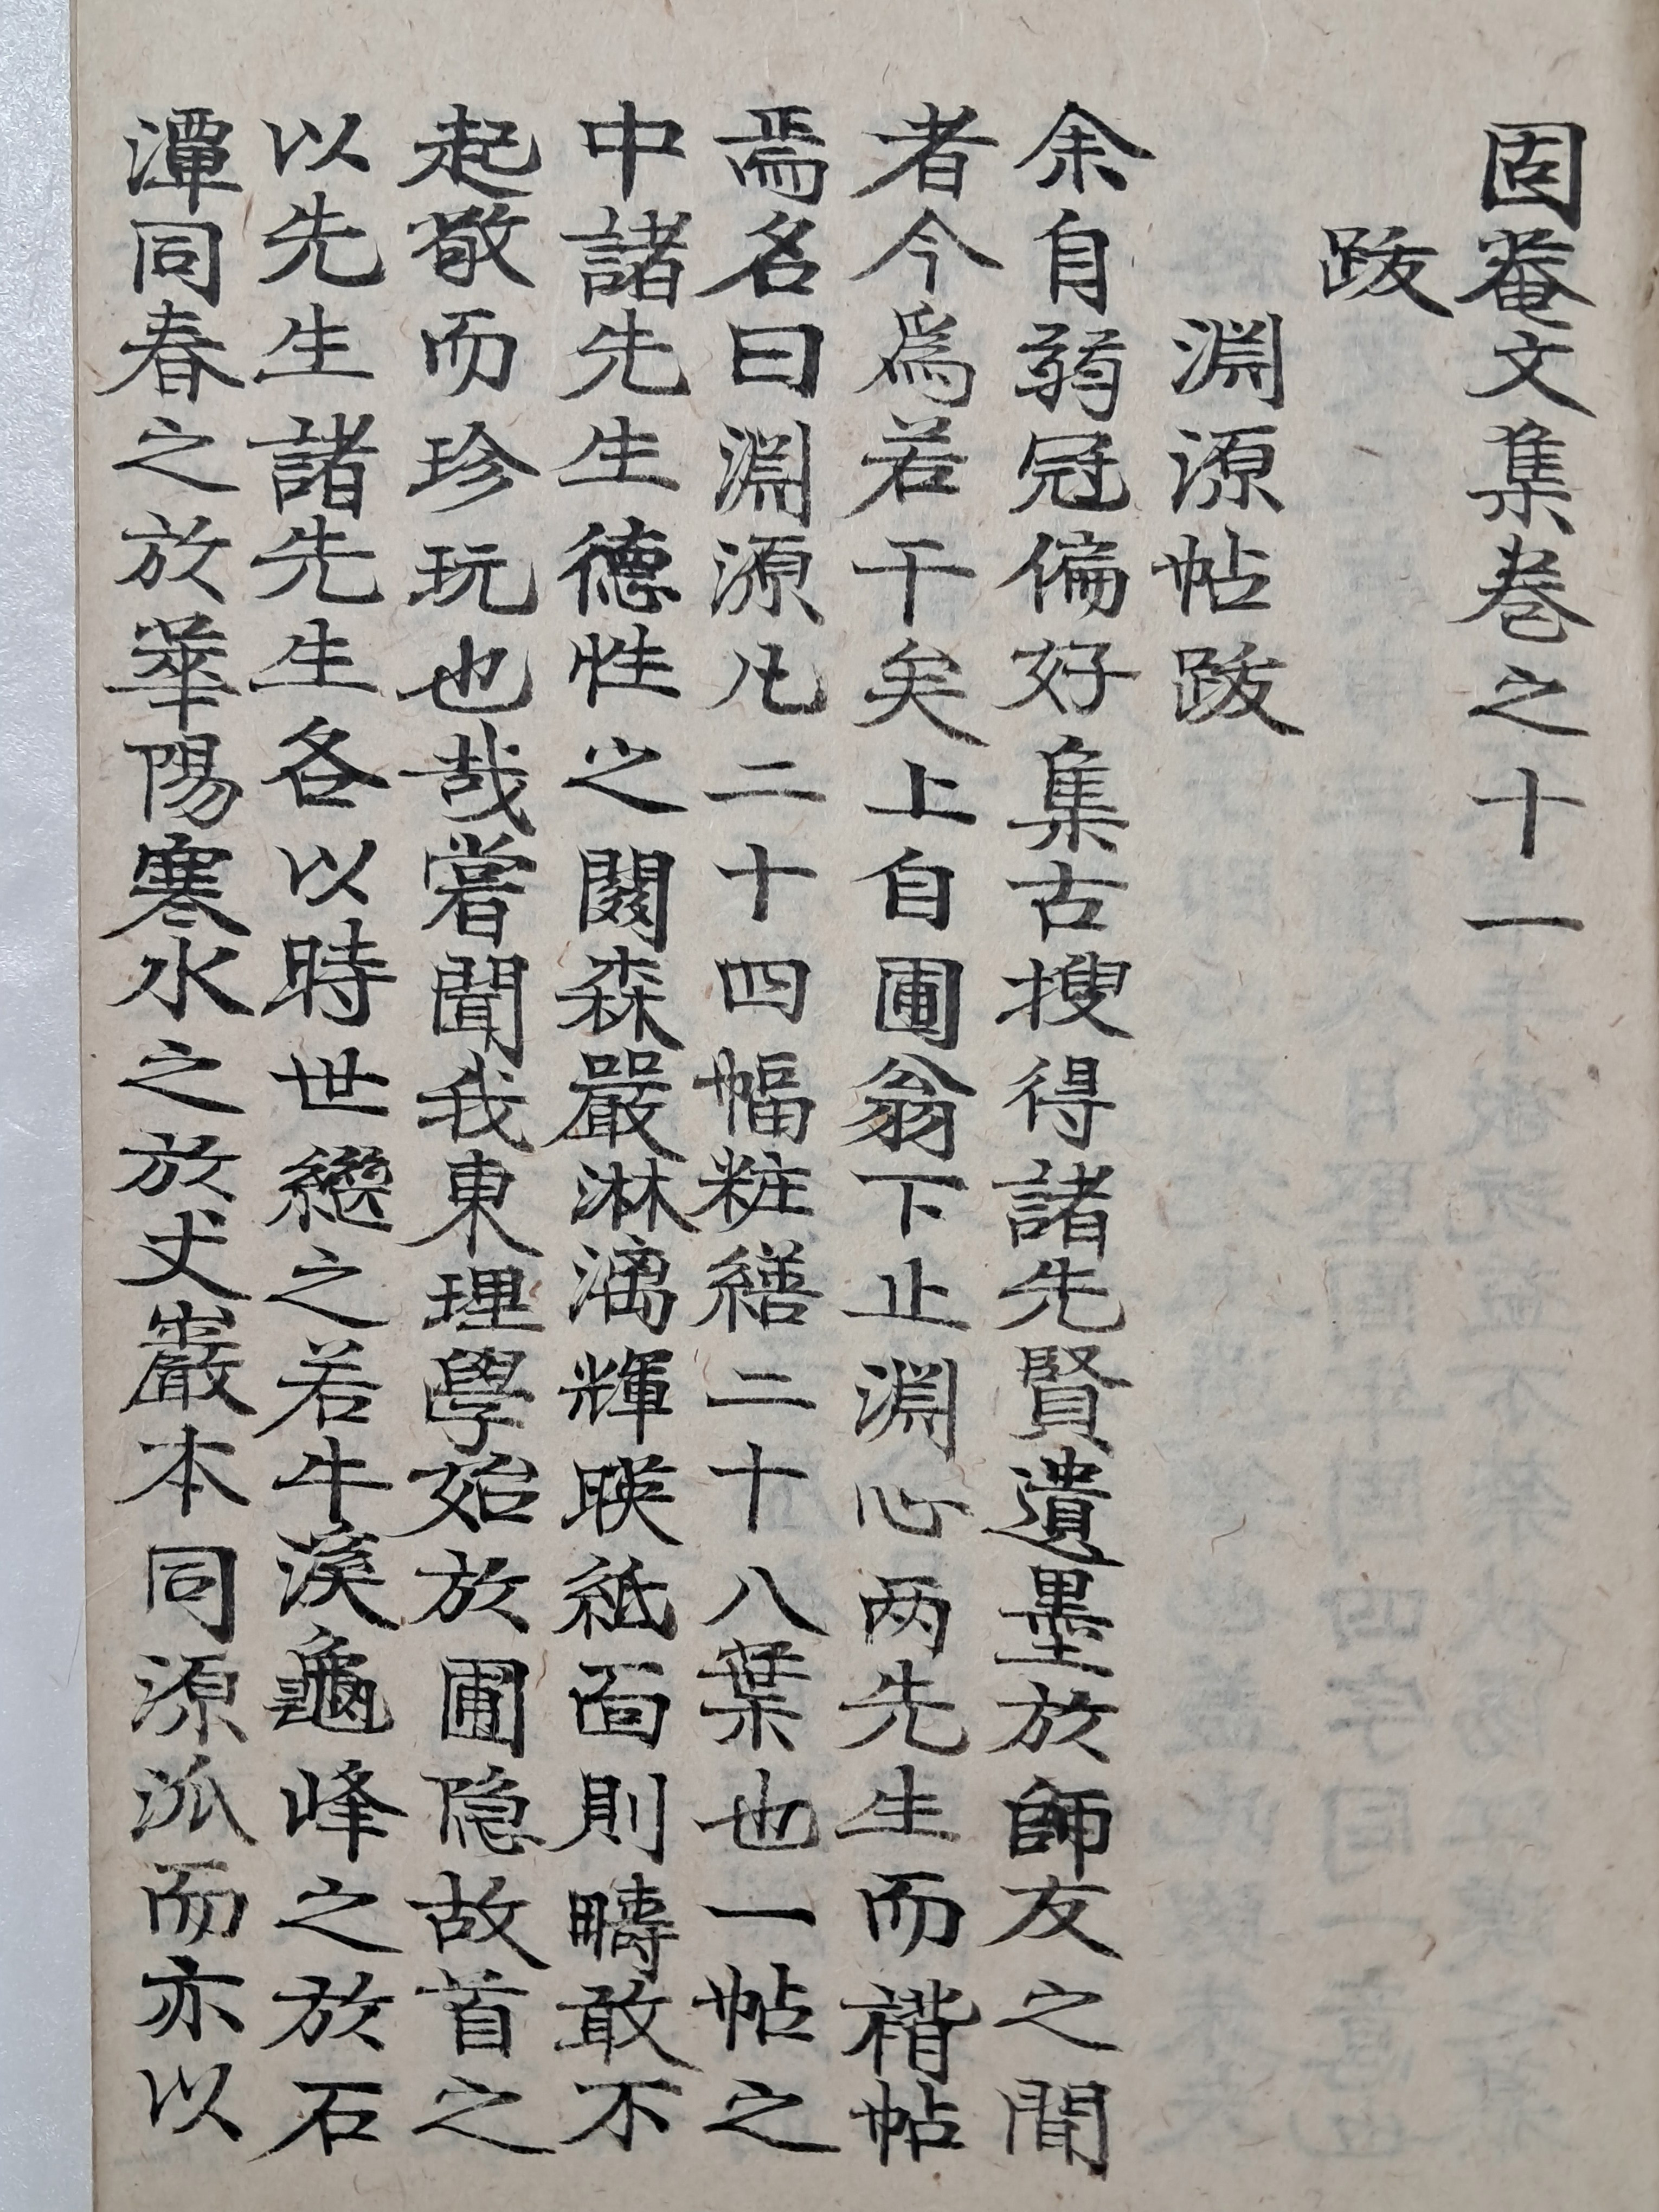 固菴文集卷之十一
跋
淵源帖跋
余自弱冠偏好集古搜得諸先賢遺墨於師友之間
者今爲若干矣上自圃翁下止淵心两先生而楷帖
焉名曰淵源凡二十四幅粧繕二十八葉也一帖之
中諸先生德性之閟森嚴淋漓輝暎紙面則疇敢不
起敬而珍玩也哉嘗聞我東理學始於圃隐故首之
以先生諸先生各以時世繼之若牛溪龜峰之於石
潭同春之於華陽寒水之於丈巖本同源派而亦以